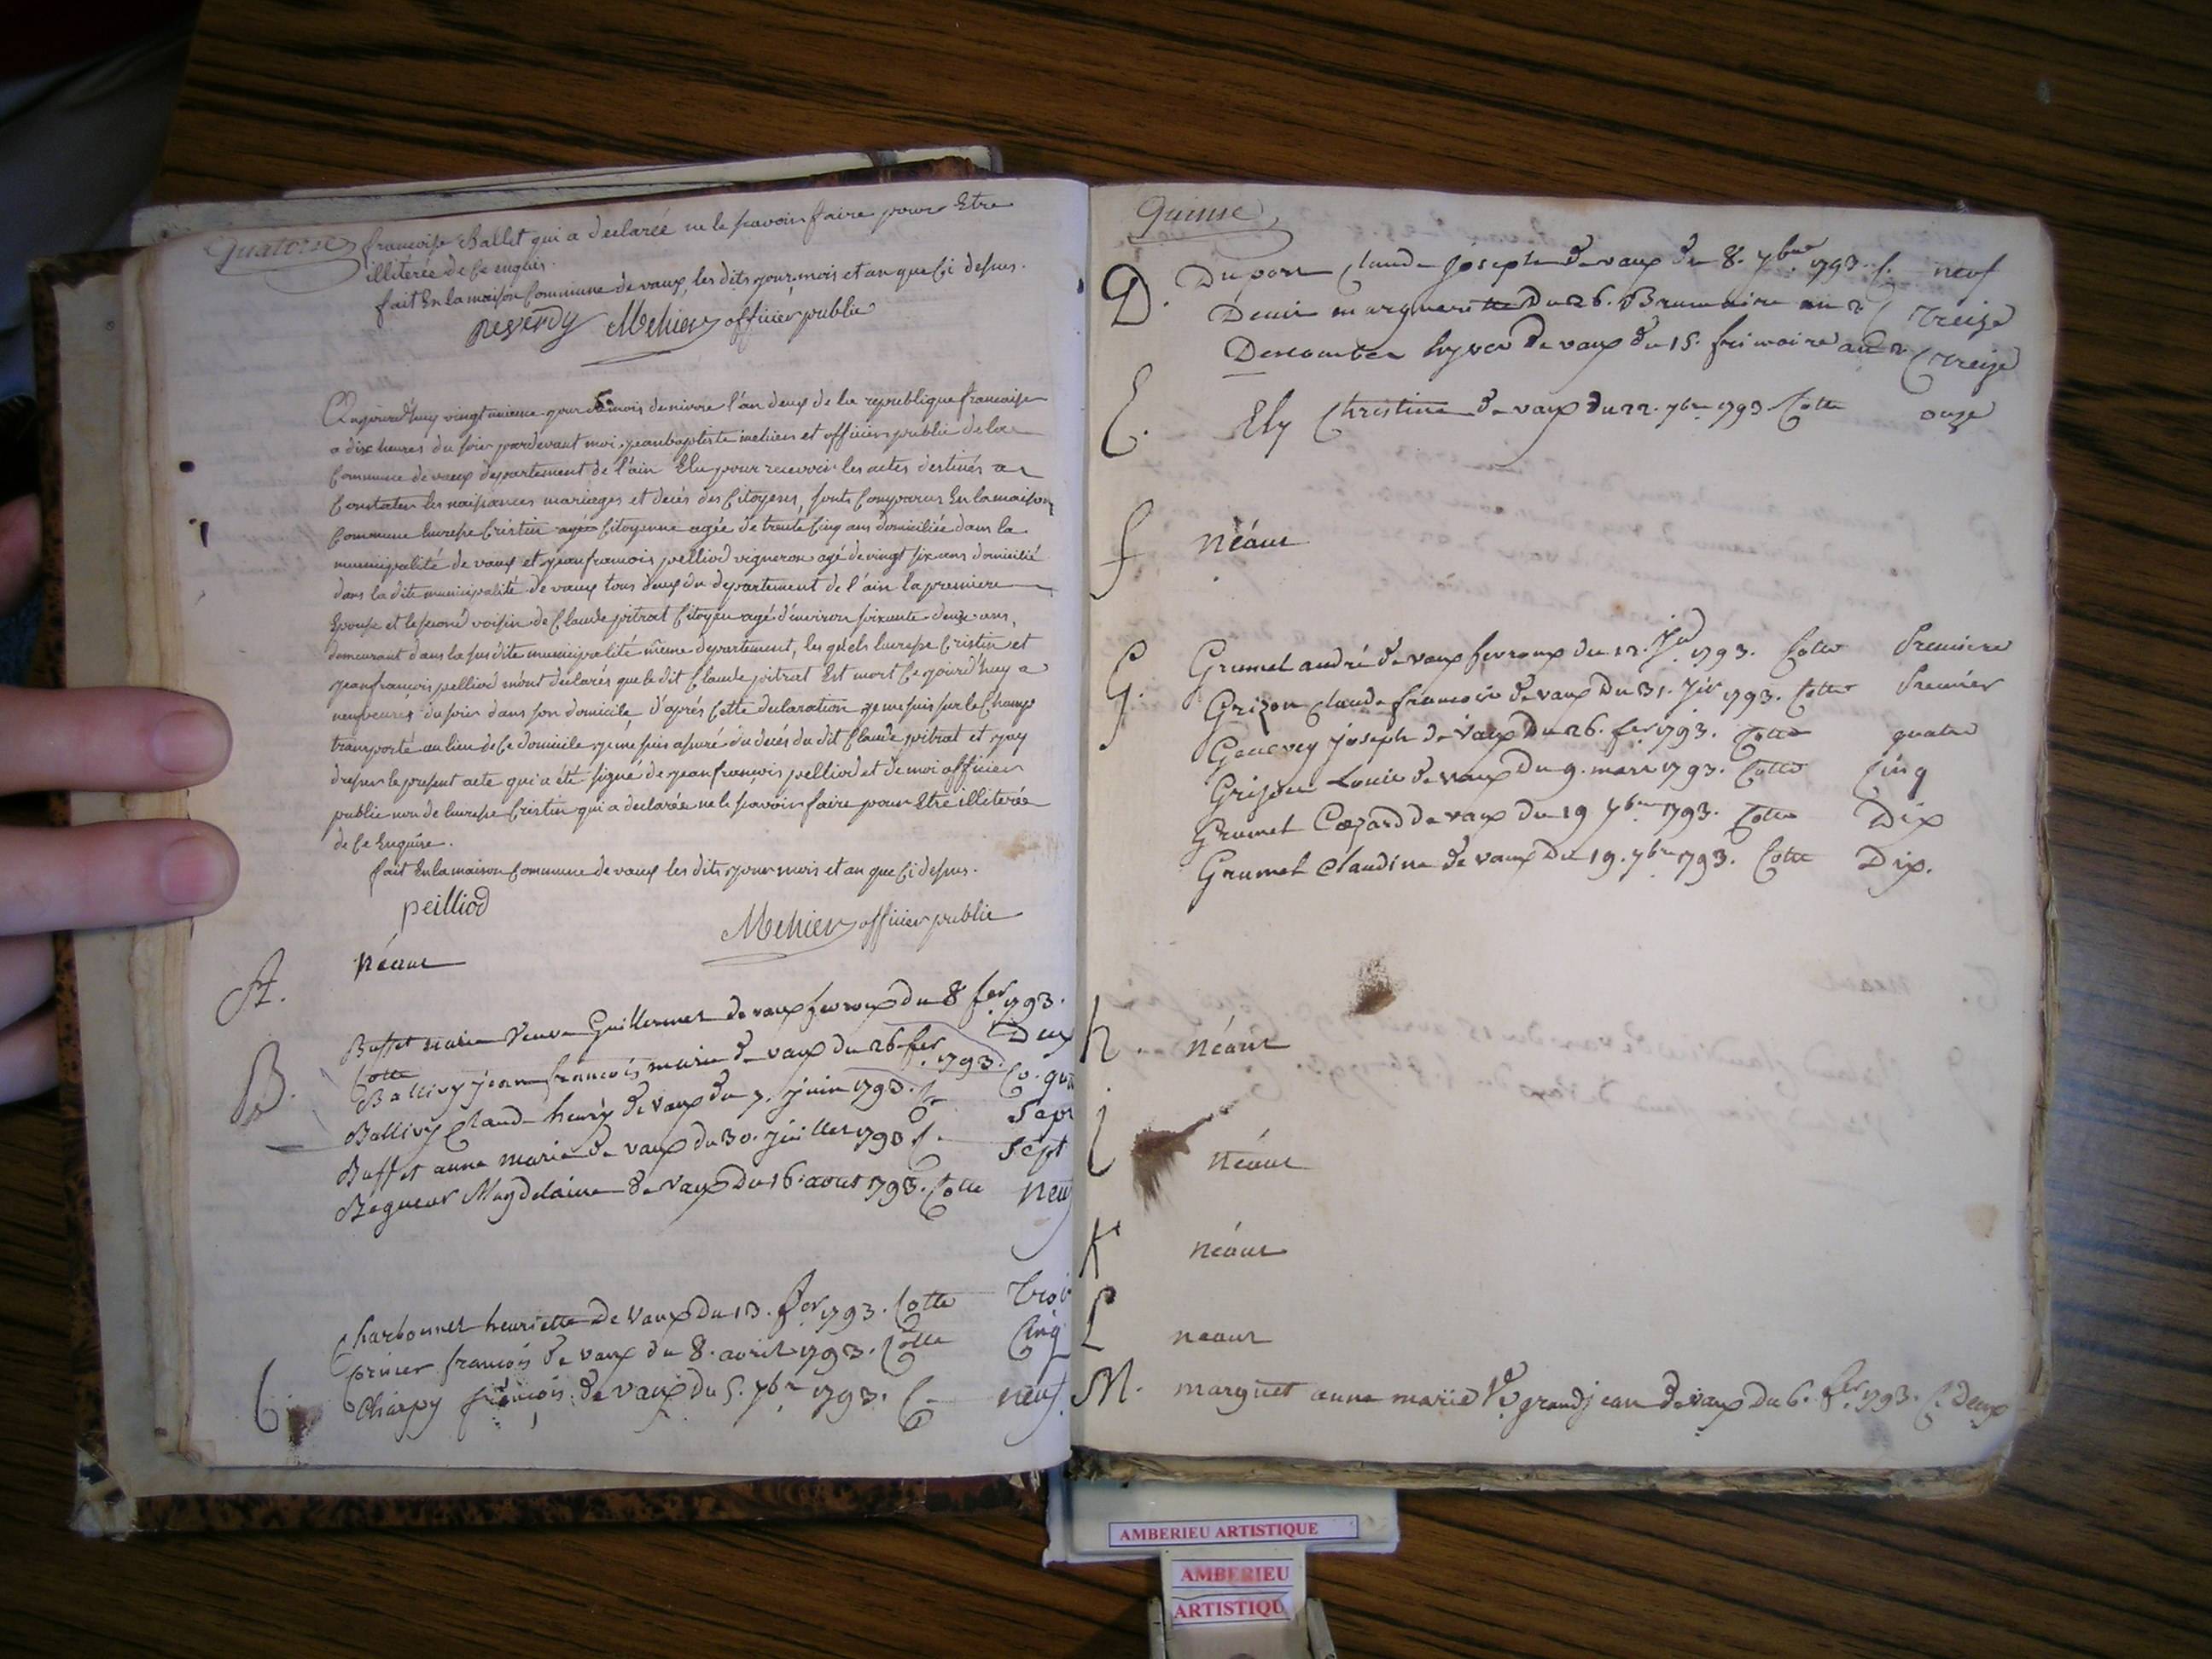 Quatorze
francoise Ballet qui a declarée ne le scavoir faire pour Etre
illiterée de ce enquis.
fait En la maison Commune de vaux, les dits jour, mois et an que Ci dessus.
reverdy Mehier officier public
Aujourd'huy vingt unieme jour du mois de nivose l'an deux de la republique francaise
a dix heures du soir pardevant moi jean baptiste mehier et officier public de la
Commune de vaux departement de l'ain Elu pour recevoir les actes destinés a
Constater les naissances mariages et decés des Citoyens, sont Comparus En la maison
Commune Cristin agée Citoyenne agée de trente Cinq ans domiciliée dans la
municipalité de vaux et jean francois peilliod vigneron agé de vingt six ans domicilié
dans la dite municipalité de vaux tous deux du departement de l'ain la premiere
Epouse et le second voisin de Claude pitrat Citoyen agé d'environ soixante deux ans,
demeurant dans la susdite municipalité même departement, les quels Cristin et
jean francois peilliod m'ont declarés que le dit Claude pitrat Est mort Ce jourd'huy a
neuf heures du soir dans son domicile d'aprés Cette declaration je me suis sur le Champ
transporté au lieu de Ce domicile je me suis assuré du decés du dit Claude pitrat et j'ay
dresser le present acte qui a été signé de jean françois peilliod et de moi officier
public non de Cristin qui a declarée ne le scavoir faire pour Etre illiterée
de Ce Enquise.
fait En la maison Commune de vaux les dits jour mois et an que Ci dessus.
peilliod
Mehier officier public
A. néant
B. Buffet marie veuve Guillermet de vaux fevroux du 8 fer 1793.
Cotte Deux
Ballivy jean francois marie de vaux du 26 fer 1793. Co.
Ballivy Claude henry de vaux du 7. juin 1793. C. Sept
Buffet anne marie de vaux du 30. juillet 1793 C. Sept
Begueur Magdelaine de vaux Du 16. aout 1793. Cotte neuf
Charbonnet henriette De Vaux Du 13. fer 1793. Cotte Trois
Cormier francois de vaux du 8. avril 1793. Cotte Cinq
C. Charpy françois de vaux du 5. 7bre 1793. C. neuf.
Quinse
D. Duport Claude Joseph de vaux du 8. 7bre 1793. C. neuf
Denis margueritte Du 26. Brumaire an 2 C Treize
Descombes hyver de vaux du 15. frimaire an 2 C Treize
E. Ely Christine de vaux du 22. 7bre 1793 Cotte onze
f néant
G. Grumet andré de vaux fevroux du 12. Jer 1793. Cotte Premiere
Grizon Claude francois de vaux Du 31. Jer 1793. Cotte Premier
Goucvey joseph de vaux Du 26. fer 1793. Cotte quatre
Grizon Louis de vaux du 9. mars 1793. Cotte Cinq
Grumet Cezard de vaux du 19 7bre 1793. Cotte Dix
Grumet Claudine de vaux Du 19. 7bre 1793. Cotte Dix.
h. néant
I néant
K néant
L neant
M. marguet anne marie Ve grandjean de vaux du 6. fer 1793. C. deux
AMBERIEU ARTISTIQUE
AMBERIEU
ARTISTIQU